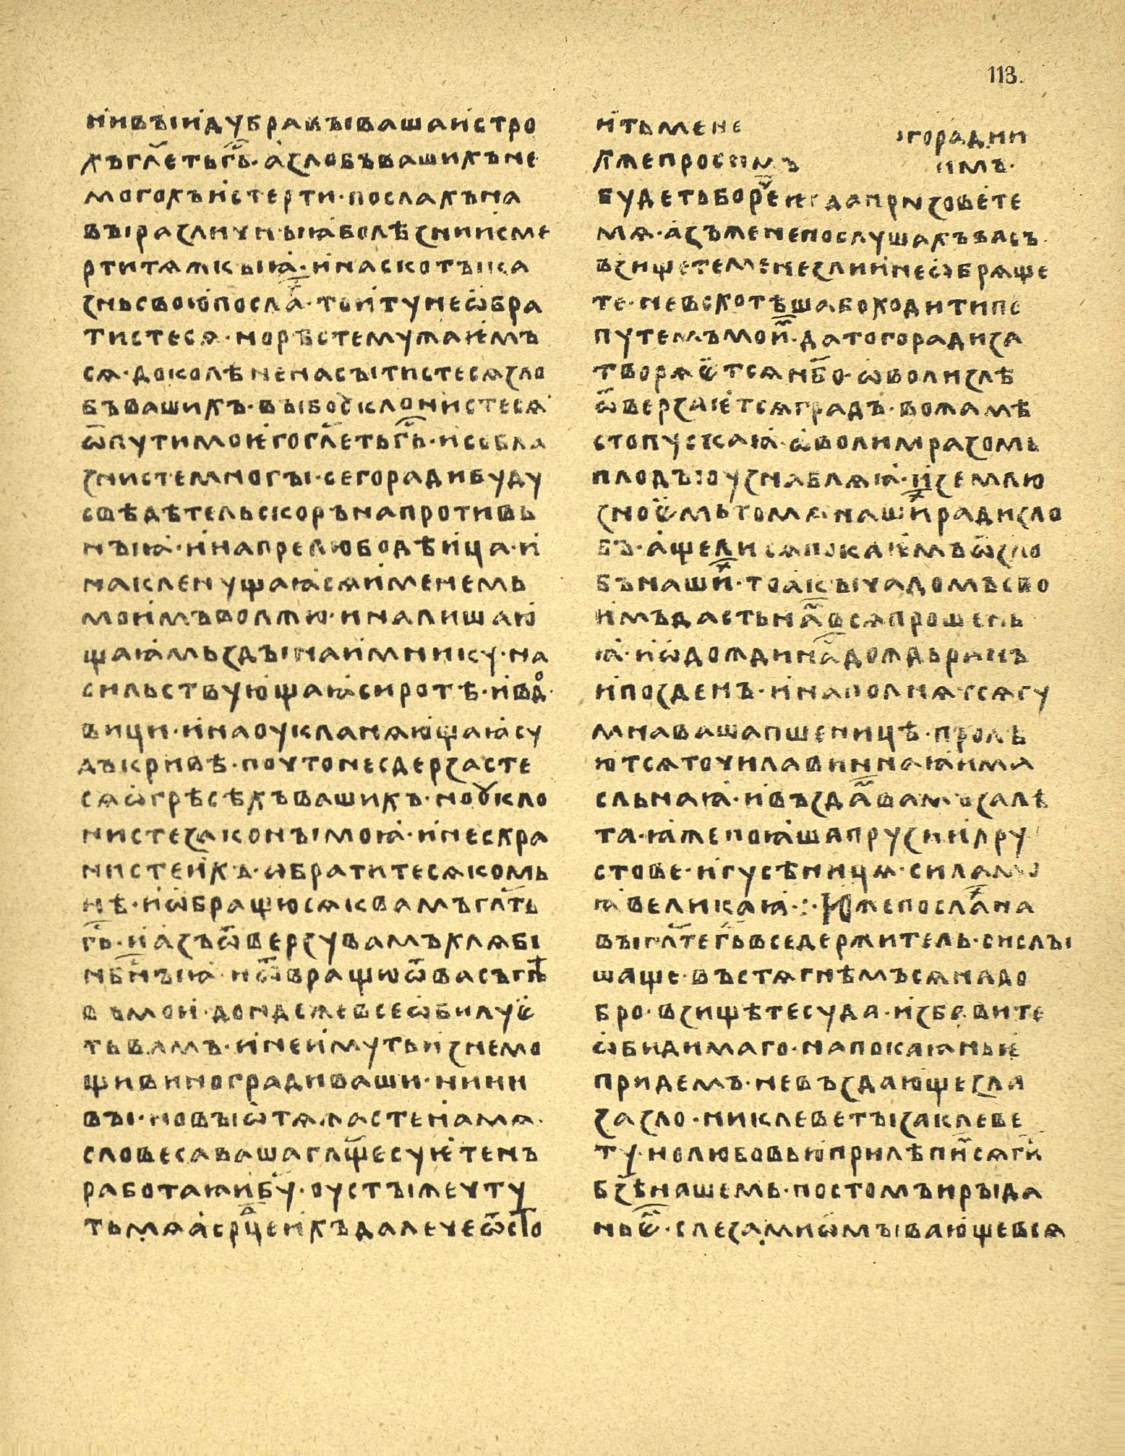 113.
нивꙑи дубравꙑ ваша и стро
хъ гл҃еть гь҃· а злобъ вашихъ не
могохъ истерти· послахъ на
вꙑ различнꙑꙗ болѣзни и сме
рти тѧжкꙑꙗ· и на скотꙑ ка
знь свою посла· то и ту не ѡбра
тистесѧ· но рѣсте мужаимъ
сѧ· доколѣ не насꙑтистесѧ зло
бъ вашихъ· вꙑ бо уклонистесѧ
ѿ пути моѥго гл҃еть гь҃· и собла
знисте многꙑ· сего ради буду
свѣдѣтель скоръ на противь
нꙑꙗ· и на прелюбодѣица· и
на кленущаꙗсѧ именемь
моимъ во лжю· и на лишаю
щаꙗ мьздꙑ наимнику· на
сильствующаꙗ сиротѣ· и вдо
вици· и на оуклонѧющаꙗ су
дъ кривѣ· почто не сдерзасте
сѧ ѡ грѣсѣхъ вашихъ· но укло
нисте законꙑ моꙗ· и не схра
нисте ихъ· ѡбратитесѧ ко мь
нѣ· и ѡбращюсѧ к вамъ гл҃ть
гь҃· и азъ ѿверзу вамъ хлѧби
нб҃нꙑꙗ и ѿвращю ѿ васъ гнѣ
въ мои· дондеже все ѡбилуѥ
ть вамъ· и не имуть изнемо
щи виногради ваши· ни ни
вꙑ· но вꙑ ѡтѧжасте на мѧ·
словеса ваша гл҃ще суѥтенъ
работаꙗи бу҃· оустꙑ же чту
ть мѧ а срд҃це ихъ далече ѿсто
ить мене
го ради и
хже просимъ
имъ·
будеть бо реч҃ ѥгда призовете
мѧ· азъ же не послушаю васъ
взищете мене зли и не ѡбрѧще
те· не всхотѣша бо ходити по
путемъ моимъ· да того ради за
творѧѥтсѧ нб҃о· ѡво ли злѣ
ѿверзаѥтсѧ градъ· в дожа мѣ
сто пускаꙗ· ѡво ли мразомь
плодꙑ оузнаблѧꙗ· и землю
зноѥмь томѧ наших ради зло
бъ· аще ли сѧ покаѥмъ ѿ зло
бъ наших· то акꙑ чадомъ сво
имъ дасть намъ всѧ прошень
ꙗ· и ѡдождить намъ дождь ранъ
и позденъ· и наполнѧтсѧ гу
мна ваша пшеницѣ· пролѣ
ютсѧ точила виннаꙗ и ма
сльнаꙗ· и въздамъ вамъ за лѣ
та· ꙗже поꙗша прузи и хру
стове· и гусѣницѧ· сила моꙗ
ꙗ великаꙗ·:· Юже послах на
вꙑ гл҃те гь҃ вседержитель· си слꙑ
шаще· въстѧгнѣмъсѧ на до
бро· взищѣте суда· избавите
ѡбидимаго· на покаꙗньѥ
придемъ· не въздающе зла
за зло· ни клеветꙑ за клеве
ту· но любовью прилѣпимсѧ гѣ
бз҃ѣ нашемь· постомъ и рꙑда
ньѥ· слезами ѡмꙑвающе всѧ